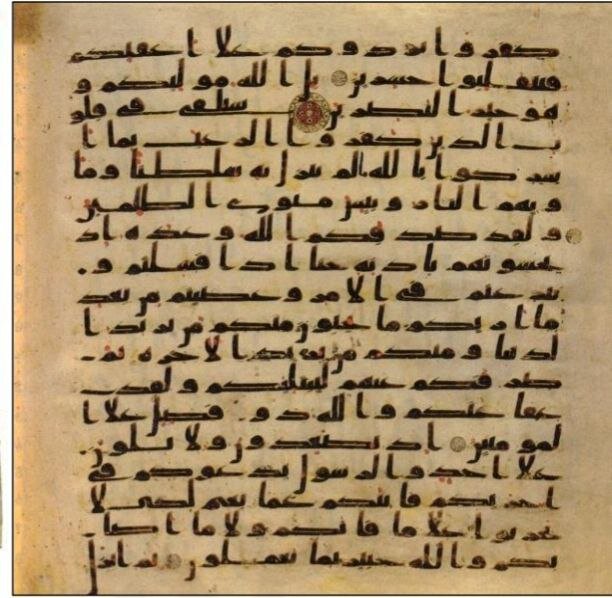 كفروا يردوكم علا اعقبكم
فتنقلبوا خسرين بل الله موليكم و
هو خير النصرين سنلقى فى قلو
ب الذين كفروا الرعب بما ا
شركوا بالله مالم ينزل به سلطنا وما
ويهم النار وبئس مثوى الظلمين
ولقد صدقكم الله وعده اذ
تحسونهم باذنه حتا اذا فشلتم و
تنزعتم فى الامر وعصيتم من بعد
ما اريكم ما تحبون منكم من يريد ا
لدنيا ومنكم من يريد الاخرة ثم
صرفكم عنهم ليبتليكم ولقد
عفا عنكم والله ذو فضل علا ا
لمومنين اذ تصعدون ولا تلون
علا احد والرسول يدعوكم فى
اخريكم فاثبكم غما بغم لكى لا
تحزنوا علا ما فاتكم ولا ما اصا
بكم والله خبير بما تعملون ثم انزل